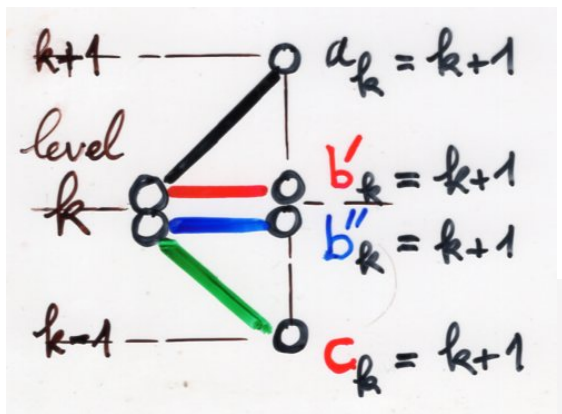 k+1
a_k = k+1
level
b'_k = k+1
k
b''_k = k+1
k-1
c_k = k+1